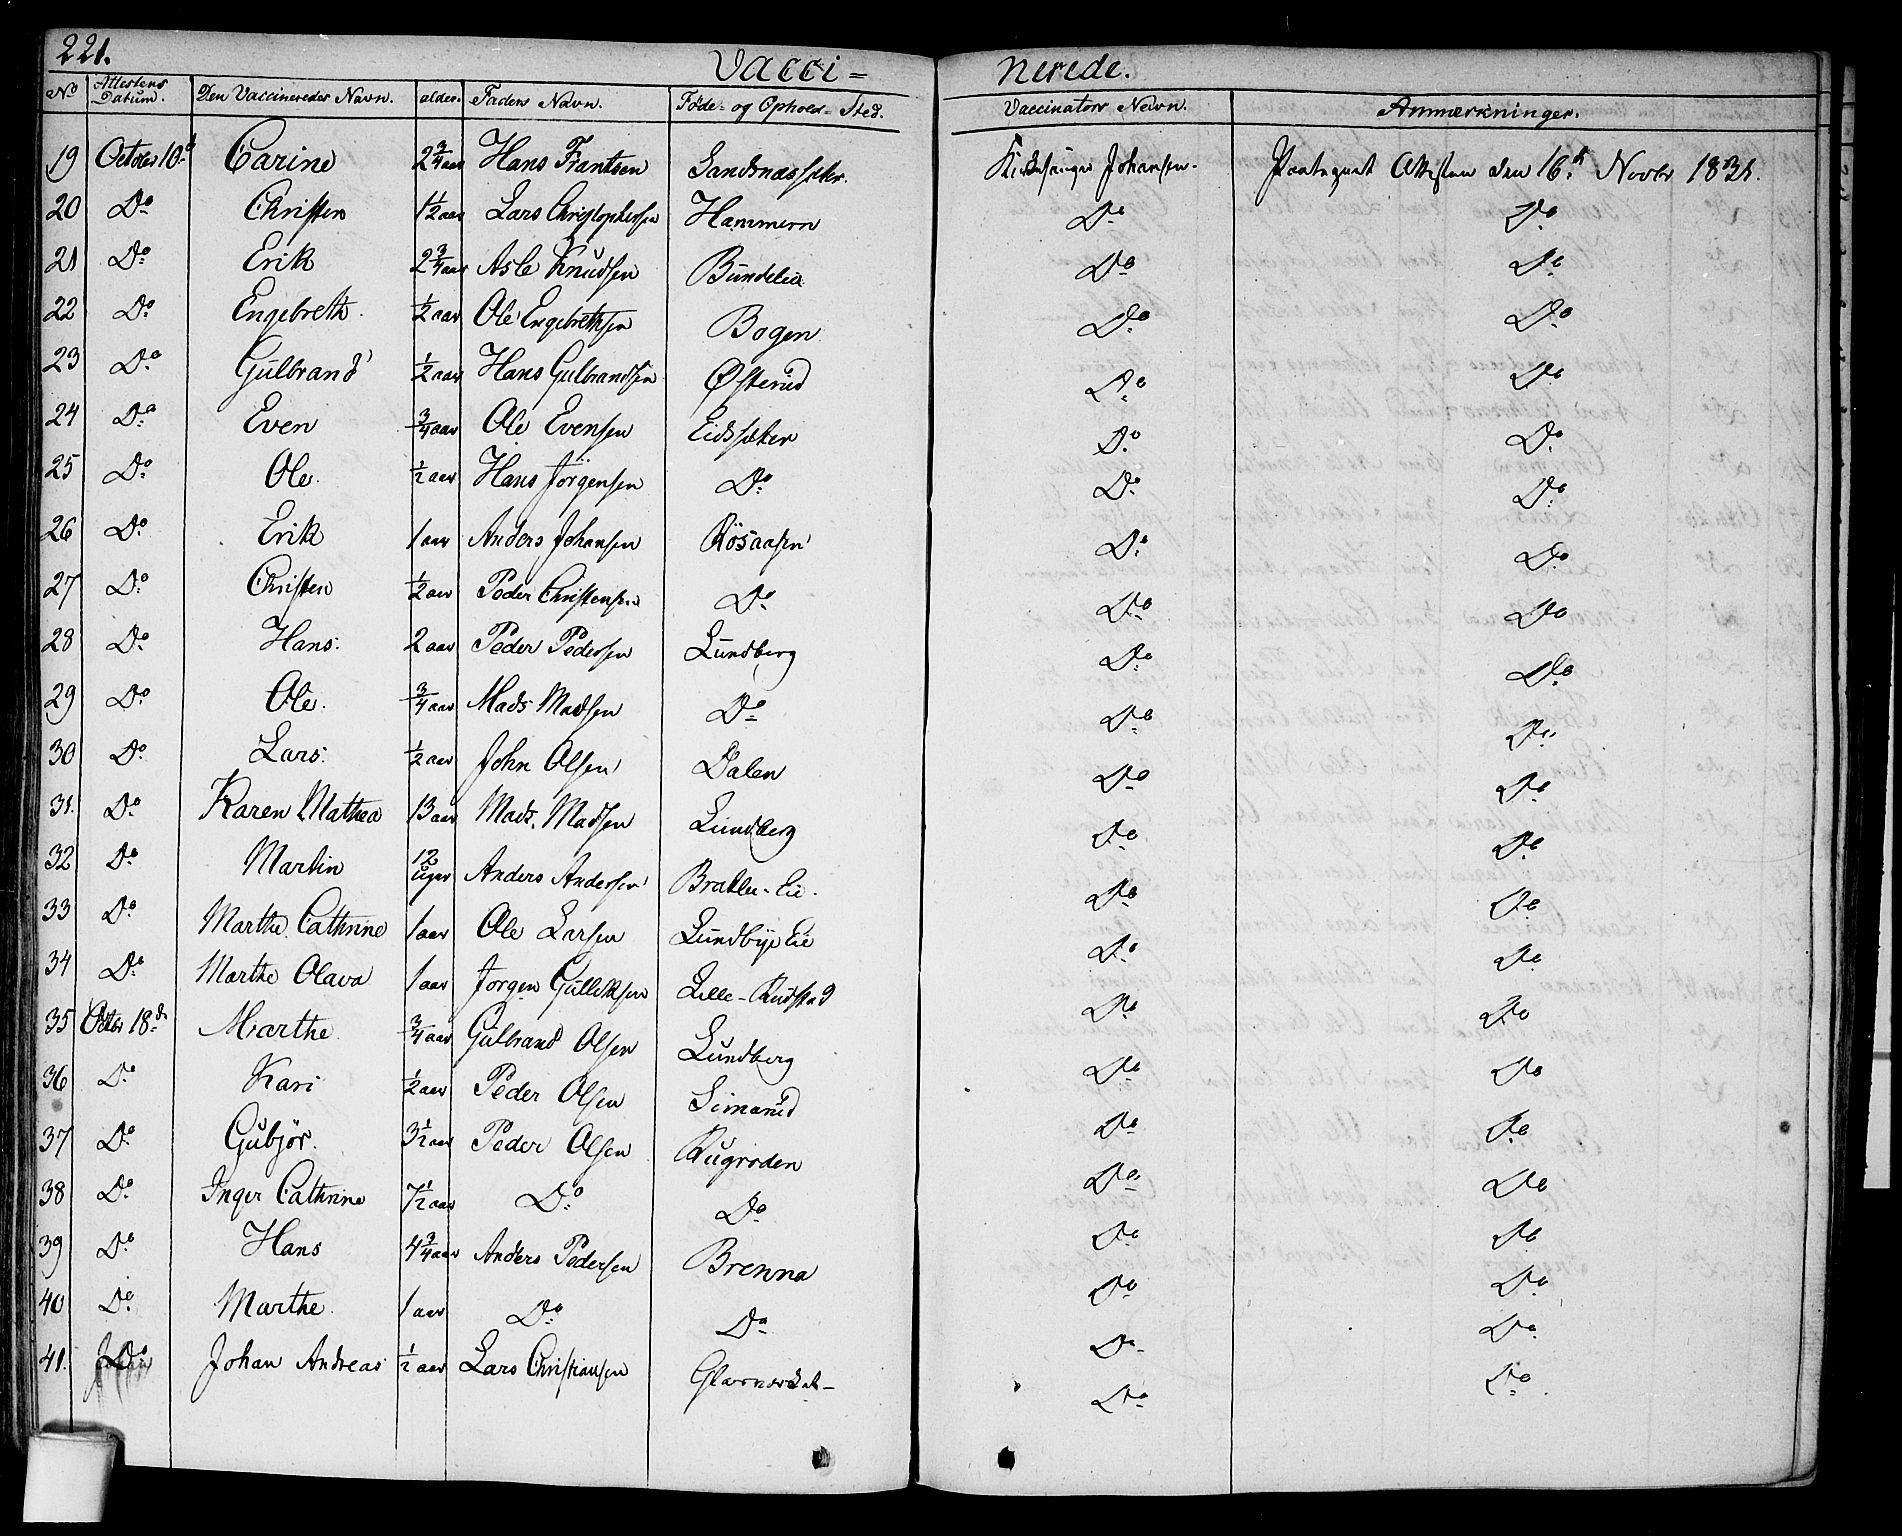 221. Vacci= nerede.
No Attestens Datum. Den Vaccineredes Navn. alder. Faders Navn. Føde- og Ophold- Sted. Vaccinators Navn. Anmærkninger.
19 October 10d Carine 2 3/4 aar Hans Frantsen Johansen. Attesten den 16d Novbr 1831.
20 Do Christen 1 1/2 aar Lars Christophersen Hammern Do Do
21 Do Erik 2 3/4 aar Asle Knudsen Bundelia Do Do
22 Do Engebreth 1/2 aar Ole Engebrethsen Bogen Do Do
23 Do Gulbrand 1/2 aar Hans Gulbrandsen Østerud Do Do
24 Do Even 3/4 aar Ole Evensen Do Do
25 Do Ole 1/2 aar Hans Jörgensen Do Do Do
26 Do Erik 1 aar Anders Johansen Do Do
27 Do Christen 1/2 aar Peder Christensen Do Do Do
28 Do Hans. 2 aar Peder Pedersen Lundberg Do Do
29 Do Ole. 3/4 aar Mads Madsen Do Do Do
30 Do Lars. 1/2 aar John Olsen Dalen Do Do
31. Do Karen Mathea 13 aar Mads. Madsen Lundberg Do Do
32 Do Martin 12 uger Anders Andersen Do Do
33 Do Marthe Cathrine 1 aar Ole Larsen Lundbye Eie Do Do
34 Do Marthe Olava 1 aar Jorgen Gulliksen Lille- Do Do
35 Octbr 18d Marthe 3/4 aar Gulbrand Olsen Lundberg Do Do
36 Do Kari 1/2 aar Peder Olsen Simarud Do Do
37 Do Gubjör. 3 1/2 aar Peder Olsen Rugroden Do Do
38 Do Inger Cathrine 7 1/2 aar Do Do Do Do
39 Do Hans 4 3/4 aar Anders Pedersen Brenna Do Do
40 Do Marthe 1 aar Do Do Do Do
41. Do Johan Andreas 1/2 aar Lars Christiansen Do Do